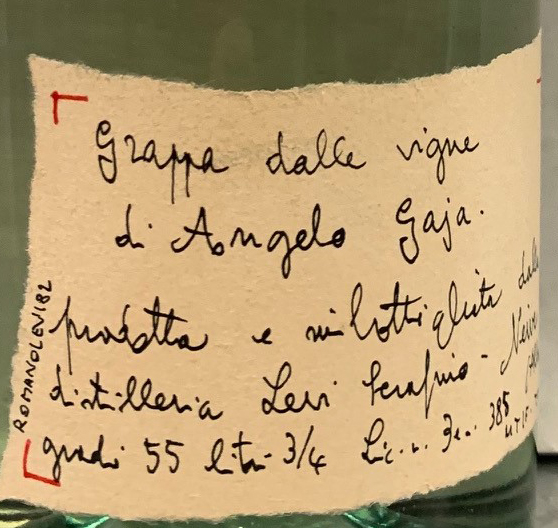 Grappa dalle vigne
di Angelo Gaja.
prodotta e imbottigliata dalla
distilleria Levi Serafino - Neive
gradi 55 litri 3/4 Lic. n. 385
ROMANOLEVI82